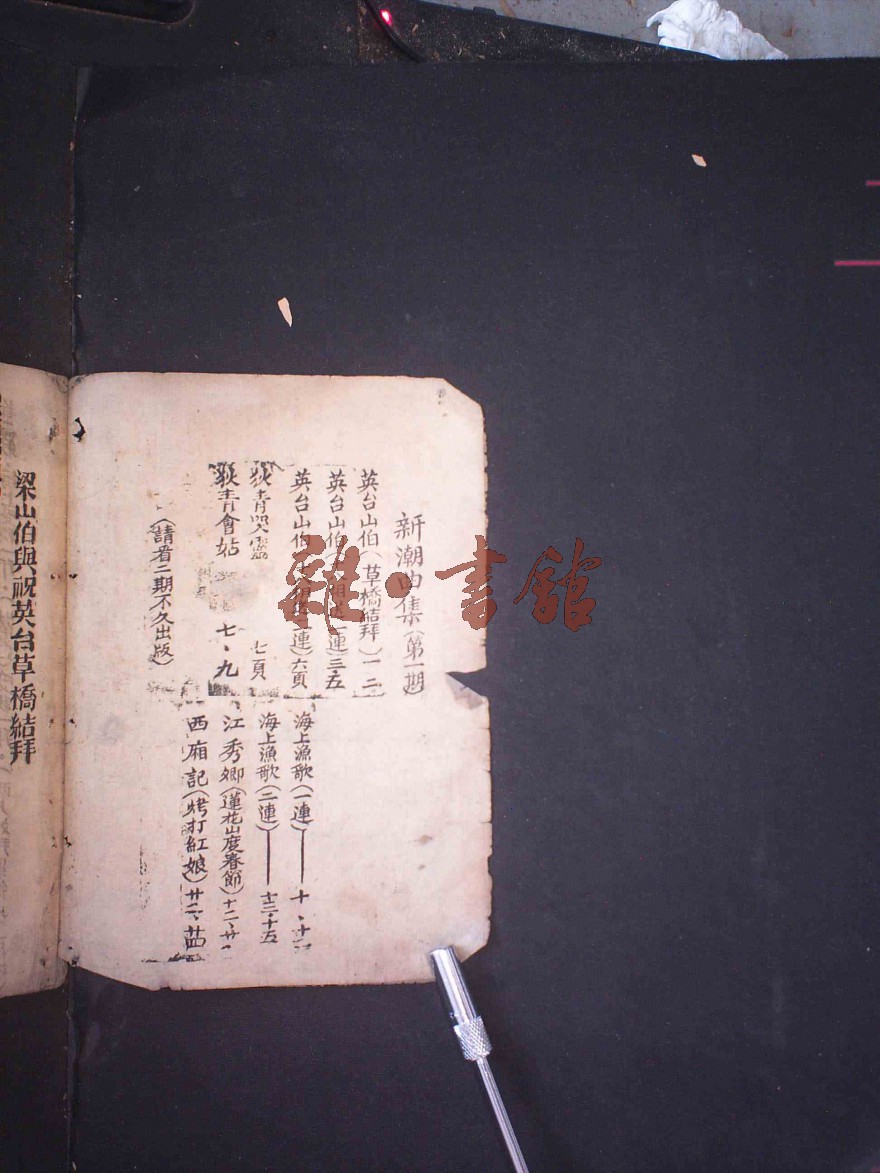 新潮曲集（第一期）
英台山伯（草橋結拜）一二
英台山伯（相送一連）三·五
英台山伯（相送二連）六頁
狄青哭靈 七頁
狄青會姑 七、九
（請看二期不久出版）
海上漁歌（一連）—— 十、十
海上漁歌（二連）—— 十三·十五
江秀卿（蓮花山度春節）十二、廿
西廂記（烤打紅娘）廿二、
梁山伯與祝英台草橋結拜
雜·書館